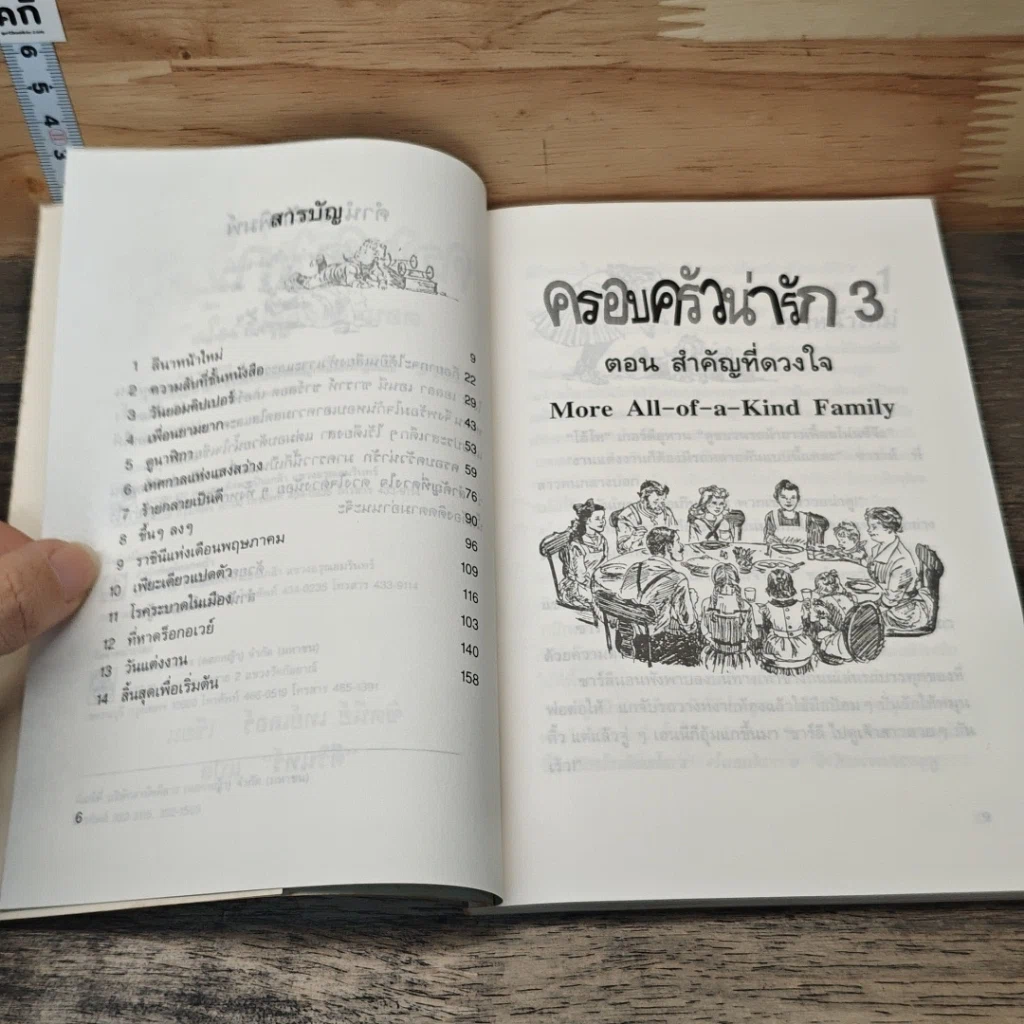 สารบัญ
1 ลีนาหน้าใหม่ 9
2 ความลับที่ชั้นหนังสือ 22
3 วันยอมคิปเปอร์ 29
4 เพื่อนยามยาก 43
5 ตูนาฟิกา 53
6 เทศกาลแห่งแสงสว่าง 59
7 ร้ายกลายเป็นดี 76
8 ขึ้นๆ ลงๆ 90
9 ราชินีแห่งเดือนพฤษภาคม 96
10 เพียะเดียวแปดตัว 109
11 โรคระบาดในเมือง 116
12 ที่หาดร็อกอเวย์ 103
13 วันแต่งงาน 140
14 สิ้นสุดเพื่อเริ่มต้น 158
6
ครอบครัวน่ารัก 3
ตอน สำคัญที่ดวงใจ
More All-of-a-Kind Family
6 5 4 3